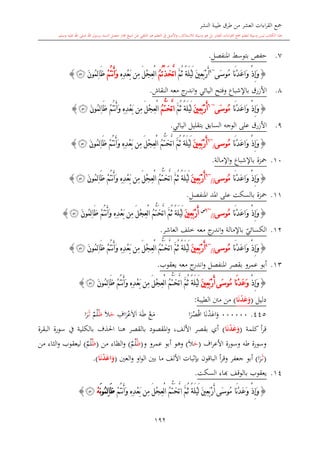 جمع القراءات العشر من طرق طيبة النشر
٧. حفص بتوسط المنفصل.
﴿ وَإِذْ وَاعَدْنَا مُوسَى أَرْبَعِينَ لَيْلَةً ثُمَّ اتَّخَذْتُمُ الْعِجْلَ مِن بَعْدِهِ وَأَنتُمْ ظَالِمُونَ ﴾
٨. الأزرق بالإشباع وفتح اليائي واندرج معه النقاش.
﴿ وَإِذْ وَاعَدْنَا مُوسَى أَرْبَعِينَ لَيْلَةً ثُمَّ اتَّخَذتُّمُ الْعِجْلَ مِن بَعْدِهِ وَأَنتُمْ ظَالِمُونَ ﴾
٩. الأزرق على الوجه السابق بتقليل اليائي.
﴿ وَإِذْ وَاعَدْنَا مُوسَى أَرْبَعِينَ لَيْلَةً ثُمَّ اتَّخَذتُّمُ الْعِجْلَ مِن بَعْدِهِ وَأَنتُمْ ظَالِمُونَ ﴾
١٠. حمزة بالإشباع والإمالة.
﴿ وَإِذْ وَاعَدْنَا مُوسَى أَرْبَعِينَ لَيْلَةً ثُمَّ اتَّخَذتُّمُ الْعِجْلَ مِن بَعْدِهِ وَأَنتُمْ ظَالِمُونَ ﴾
١١. حمزة بالسكت على المد المنفصل.
﴿ وَإِذْ وَاعَدْنَا مُوسَى أَرْبَعِينَ لَيْلَةً ثُمَّ اتَّخَذتُّمُ الْعِجْلَ مِن بَعْدِهِ وَأَنتُمْ ظَالِمُونَ ﴾
١٢. الكسائيّ بالإمالة واندرج معه خلف العاشر.
﴿ وَإِذْ وَاعَدْنَا مُوسَى أَرْبَعِينَ لَيْلَةً ثُمَّ اتَّخَذتُّمُ الْعِجْلَ مِن بَعْدِهِ وَأَنتُمْ ظَالِمُونَ ﴾
١٣. أبو عمرو بقصر المنفصل واندرج معه يعقوب.
﴿ وَإِذْ وَعَدْنَا مُوسَى أَرْبَعِينَ لَيْلَةً ثُمَّ اتَّخَذتُّمُ الْعِجْلَ مِن بَعْدِهِ وَأَنتُمْ ظَالِمُونَ ﴾
دليل (وَعَدْنَا) من متن الطيبة:
٤٤٥. ...... وَاعَدْنَا اقْصُرَا مَعْ طَهَ الاَعْرَافِ حَلاَ ظُلْمٌ ثَرَا
قرأ كلمة (وَعَدْنَا) أي بقصر الألف، والمقصود بالقصر هنا الحذف بالكلية في سورة البقرة
وسورة طه وسورة الأعراف (حَلاَ) وهو أبو عمرو و(ظُلْمٌ) والظاء من (ظُلْمٌ) ليعقوب والثاء من
(ثَرَا) أبو جعفر وقرأ الباقون بإثبات الألف ما بين الواو والعين (وَاعَدْنَا).
١٤. يعقوب بالوقف بهاء السكت.
﴿ وَإِذْ وَعَدْنَا مُوسَى أَرْبَعِينَ لَيْلَةً ثُمَّ اتَّخَذتُّمُ الْعِجْلَ مِن بَعْدِهِ وَأَنتُمْ ظَالِمُونَهْ ﴾
١٩٢